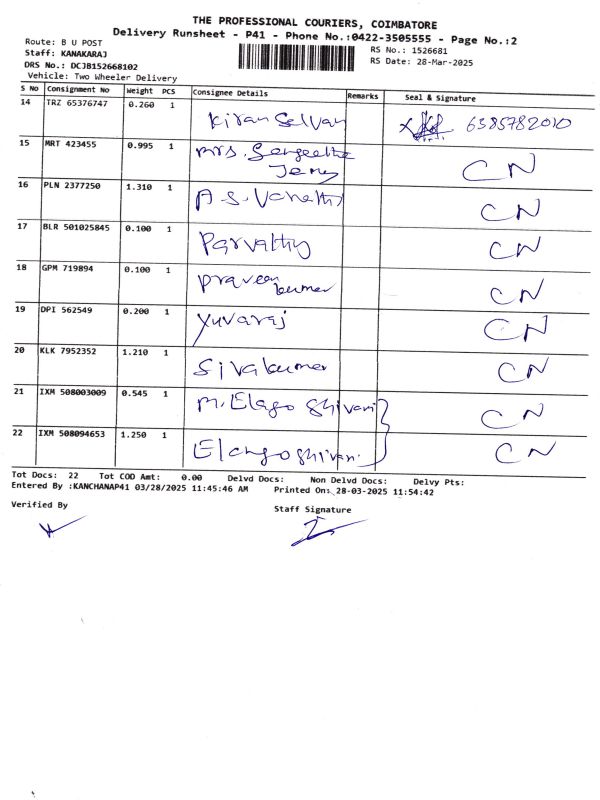 THE PROFESSIONAL COURIERS, COIMBATORE
Delivery Runsheet - P41 - Phone No.:0422-3505555 - Page No.:2
Route: B U POST
RS No.: 1526681
Staff: KANAKARAJ
RS Date: 28-Mar-2025
DRS No.: DCJB152668102
Vehicle: Two Wheeler Delivery
S No Consignment No Weight PCS Consignee Details Remarks Seal & Signature
14 TRZ 65376747 0.260 1 Kiran Selvan 6385782010
15 MRT 423455 0.995 1 Mrs. Sangeetha CN
16 PLN 2377250 1.310 1 A.S. CN
17 BLR 501025845 0.100 1 Parvathy CN
18 GPM 719894 0.100 1 Praveen kumar CN
19 DPI 562549 0.200 1 Yuvaraj CN
20 KLK 7952352 1.210 1 Sivakumar CN
21 IXM 508003009 0.545 1 M. Elago Shivani CN
22 IXM 508094653 1.250 1 Elangoshivani CN
Tot Docs: 22 Tot COD Amt: 0.00 Delvd Docs: Non Delvd Docs: Delvy Pts:
Entered By :KANCHANAP41 03/28/2025 11:45:46 AM Printed On: 28-03-2025 11:54:42
Verified By
Staff Signature